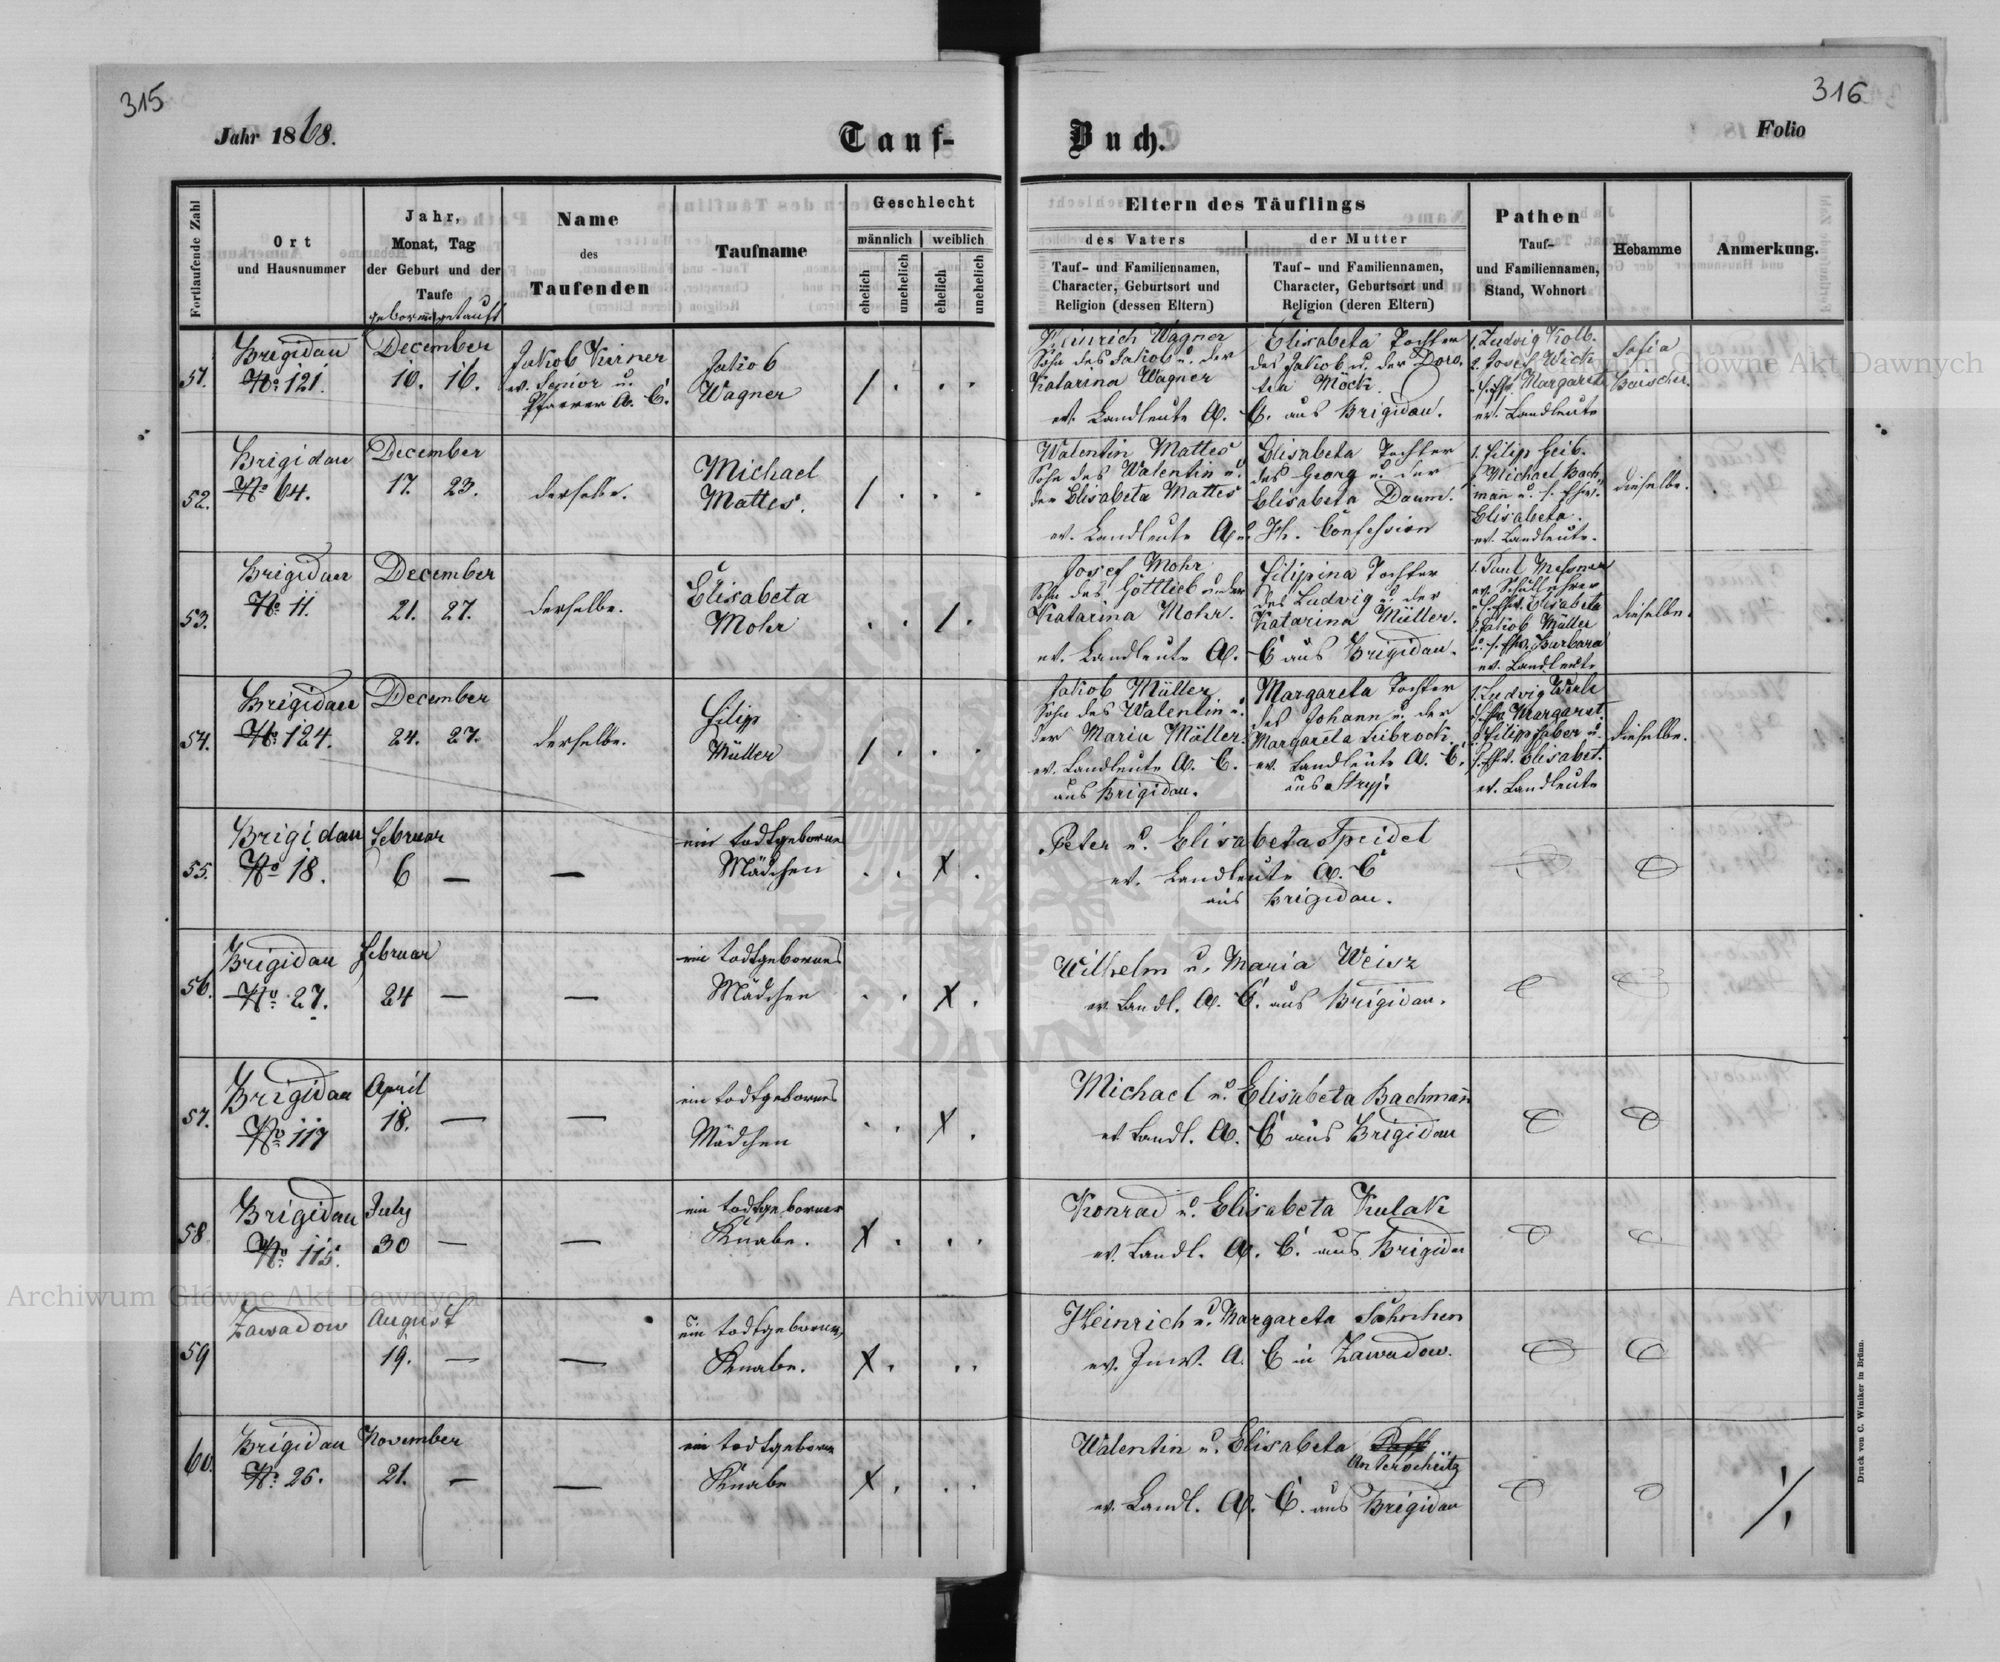 315
316
Jahr 1868.
Tauf-
Buch.
Folio
Fortlaufende Zahl
Ort
und Hausnummer
Jahr,
Monat, Tag
der Geburt und der
Taufe
geboren getauft
Name
des
Taufenden
Taufname
Geschlecht
männlich
weiblich
ehelich
unehelich
ehelich
unehelich
Eltern des Täuflings
des Vaters
Tauf- und Familiennamen,
Character, Geburtsort und
Religion (dessen Eltern)
der Mutter
Tauf- und Familiennamen,
Character, Geburtsort und
Religion (deren Eltern)
Pathen
Tauf-
und Familiennamen,
Stand, Wohnort
Hebamme
Anmerkung.
51.
Brigidau
No 121.
December
10. 16.
Jakob
ev. Senior u.
Pfarrer A. C.
Jakob
Wagner
/ . . .
Heinrich Wagner
Sohn des Jakob u. der
Katarina Wagner
ev. Landleute A.
Elisabeta Tochter
des Jakob u. der Doro-
tea Mock
C. aus Brigidau.
1. Ludvig Kolb.
2. Josef
Margaret
ev. Landleute
Sofia
52.
Brigidau
No 64.
December
17. 23.
derselbe.
Michael
Mattes.
/ . . .
Walentin Mattes
Sohn des Walentin u.
der Elisabeta Mattes
ev. Landleute A. u.
Elisabeta Tochter
des Georg u. der
Elisabeta Daum.
H. Confession
1. Filip Geib.
2. Michael Bach-
man u. s. Ehw.
Elisabeta.
ev. Landleute.
dieselbe.
53.
Brigidau
No 11.
December
21. 27.
derselbe.
Elisabeta
Mohr
. . / .
Josef Mohr
Sohn des Gottlieb u. der
Katarina Mohr.
ev. Landleute A.
Filipina Tochter
des Ludvig u. der
Katarina Müller.
C aus Brigidau.
1. Paul Messner
ev. Schullehrer
u. s. Ehw. Elisabeta
2. Jakob Müller
u. s. Ehw. Barbara
ev. Landleute
dieselbe.
54.
Brigidau
No 124.
December
24. 27.
derselbe.
Filip
Müller
/ . . .
Jakob Müller
Sohn des Walentin u.
der Maria Müller.
ev. Landleute A. C.
aus Brigidau.
Margareta Tochter
des Johann u. der
Margareta Leibrock.
ev. Landleute A. C.
aus Stryj.
1. Ludvig
Margaret.
2. Filip Faber u.
s. Ehw. Elisabet.
ev. Landleute
dieselbe.
55.
Brigidau
No 18.
Februar
6 —
—
ein todtgebornes
Mädchen
. . X .
Peter u. Elisabeta Speidel
ev. Landleute A. C
aus Brigidau.
56.
Brigidau
No 27.
Februar
24 —
—
ein todtgebornes
Mädchen
. . X .
Wilhelm u. Maria Weisz
ev. Landl. A. C. aus Brigidau.
57.
Brigidau
No 117
April
18. —
—
ein todtgebornes
Mädchen
. . X .
Michael u. Elisabeta Bachmann
ev Landl. A. C aus Brigidau
58
Brigidau
No. 115.
July
30 —
—
ein todtgeborner
Knabe.
X . . .
Konrad u. Elisabeta Kulak
ev. Landl. A. C. aus Brigidau
59
Zawadow
August
19. —
—
ein todtgeborner
Knabe.
X . . .
Heinrich u. Margareta
ev. Inw. A. C in Zawadow.
60.
Brigidau
No. 26.
November
21. —
—
ein todtgeborner
Knabe
X . . .
Walentin u. Elisabeta
Unterschütz
ev. Landl. A. C. aus Brigidau
Druck von C. Winiker in Brünn.
Archiwum Główne Akt Dawnych
Archiwum Główne Akt Dawnych